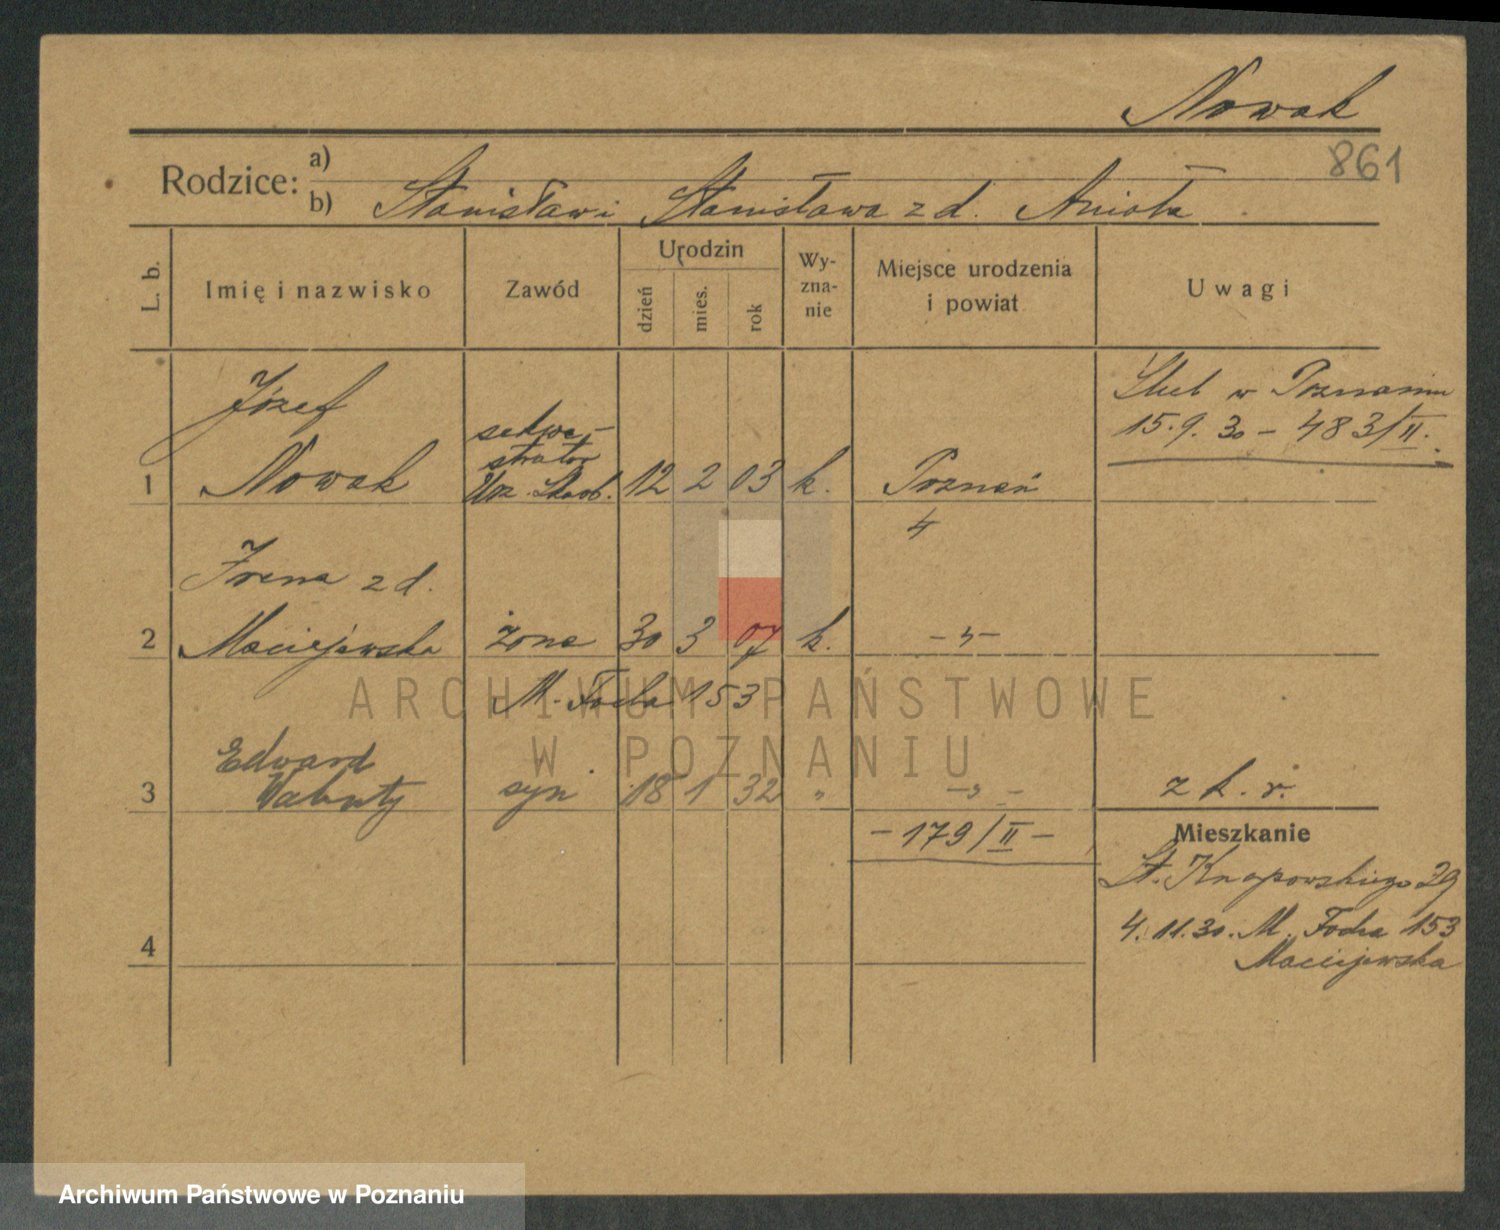 Nowak
861
Rodzice: a)
b) Stanisław i Stanisława z d. Anioła
L. b.
Imię i nazwisko
Zawód
Urodzin
dzień
mies.
rok
Wy-
zna-
nie
Miejsce urodzenia
i powiat
Uwagi
1
Józef
Nowak
sekwe-
strator
Urz. Skarb.
12 2 03 k.
Poznań
4
Ślub w Poznaniu
15.9.30 - 483/II.
2
Irena z d.
Maciejewska
żona
30 3 07 k.
M. Focha 153
3
Edward
syn
18 1 32 "
- 179/II -
z k. r.
Mieszkanie
St. Knapowskiego 29
4.11.30. M. Focha 153
Maciejewska
4
ARCHIWUM PAŃSTWOWE
W POZNANIU
Archiwum Państwowe w Poznaniu